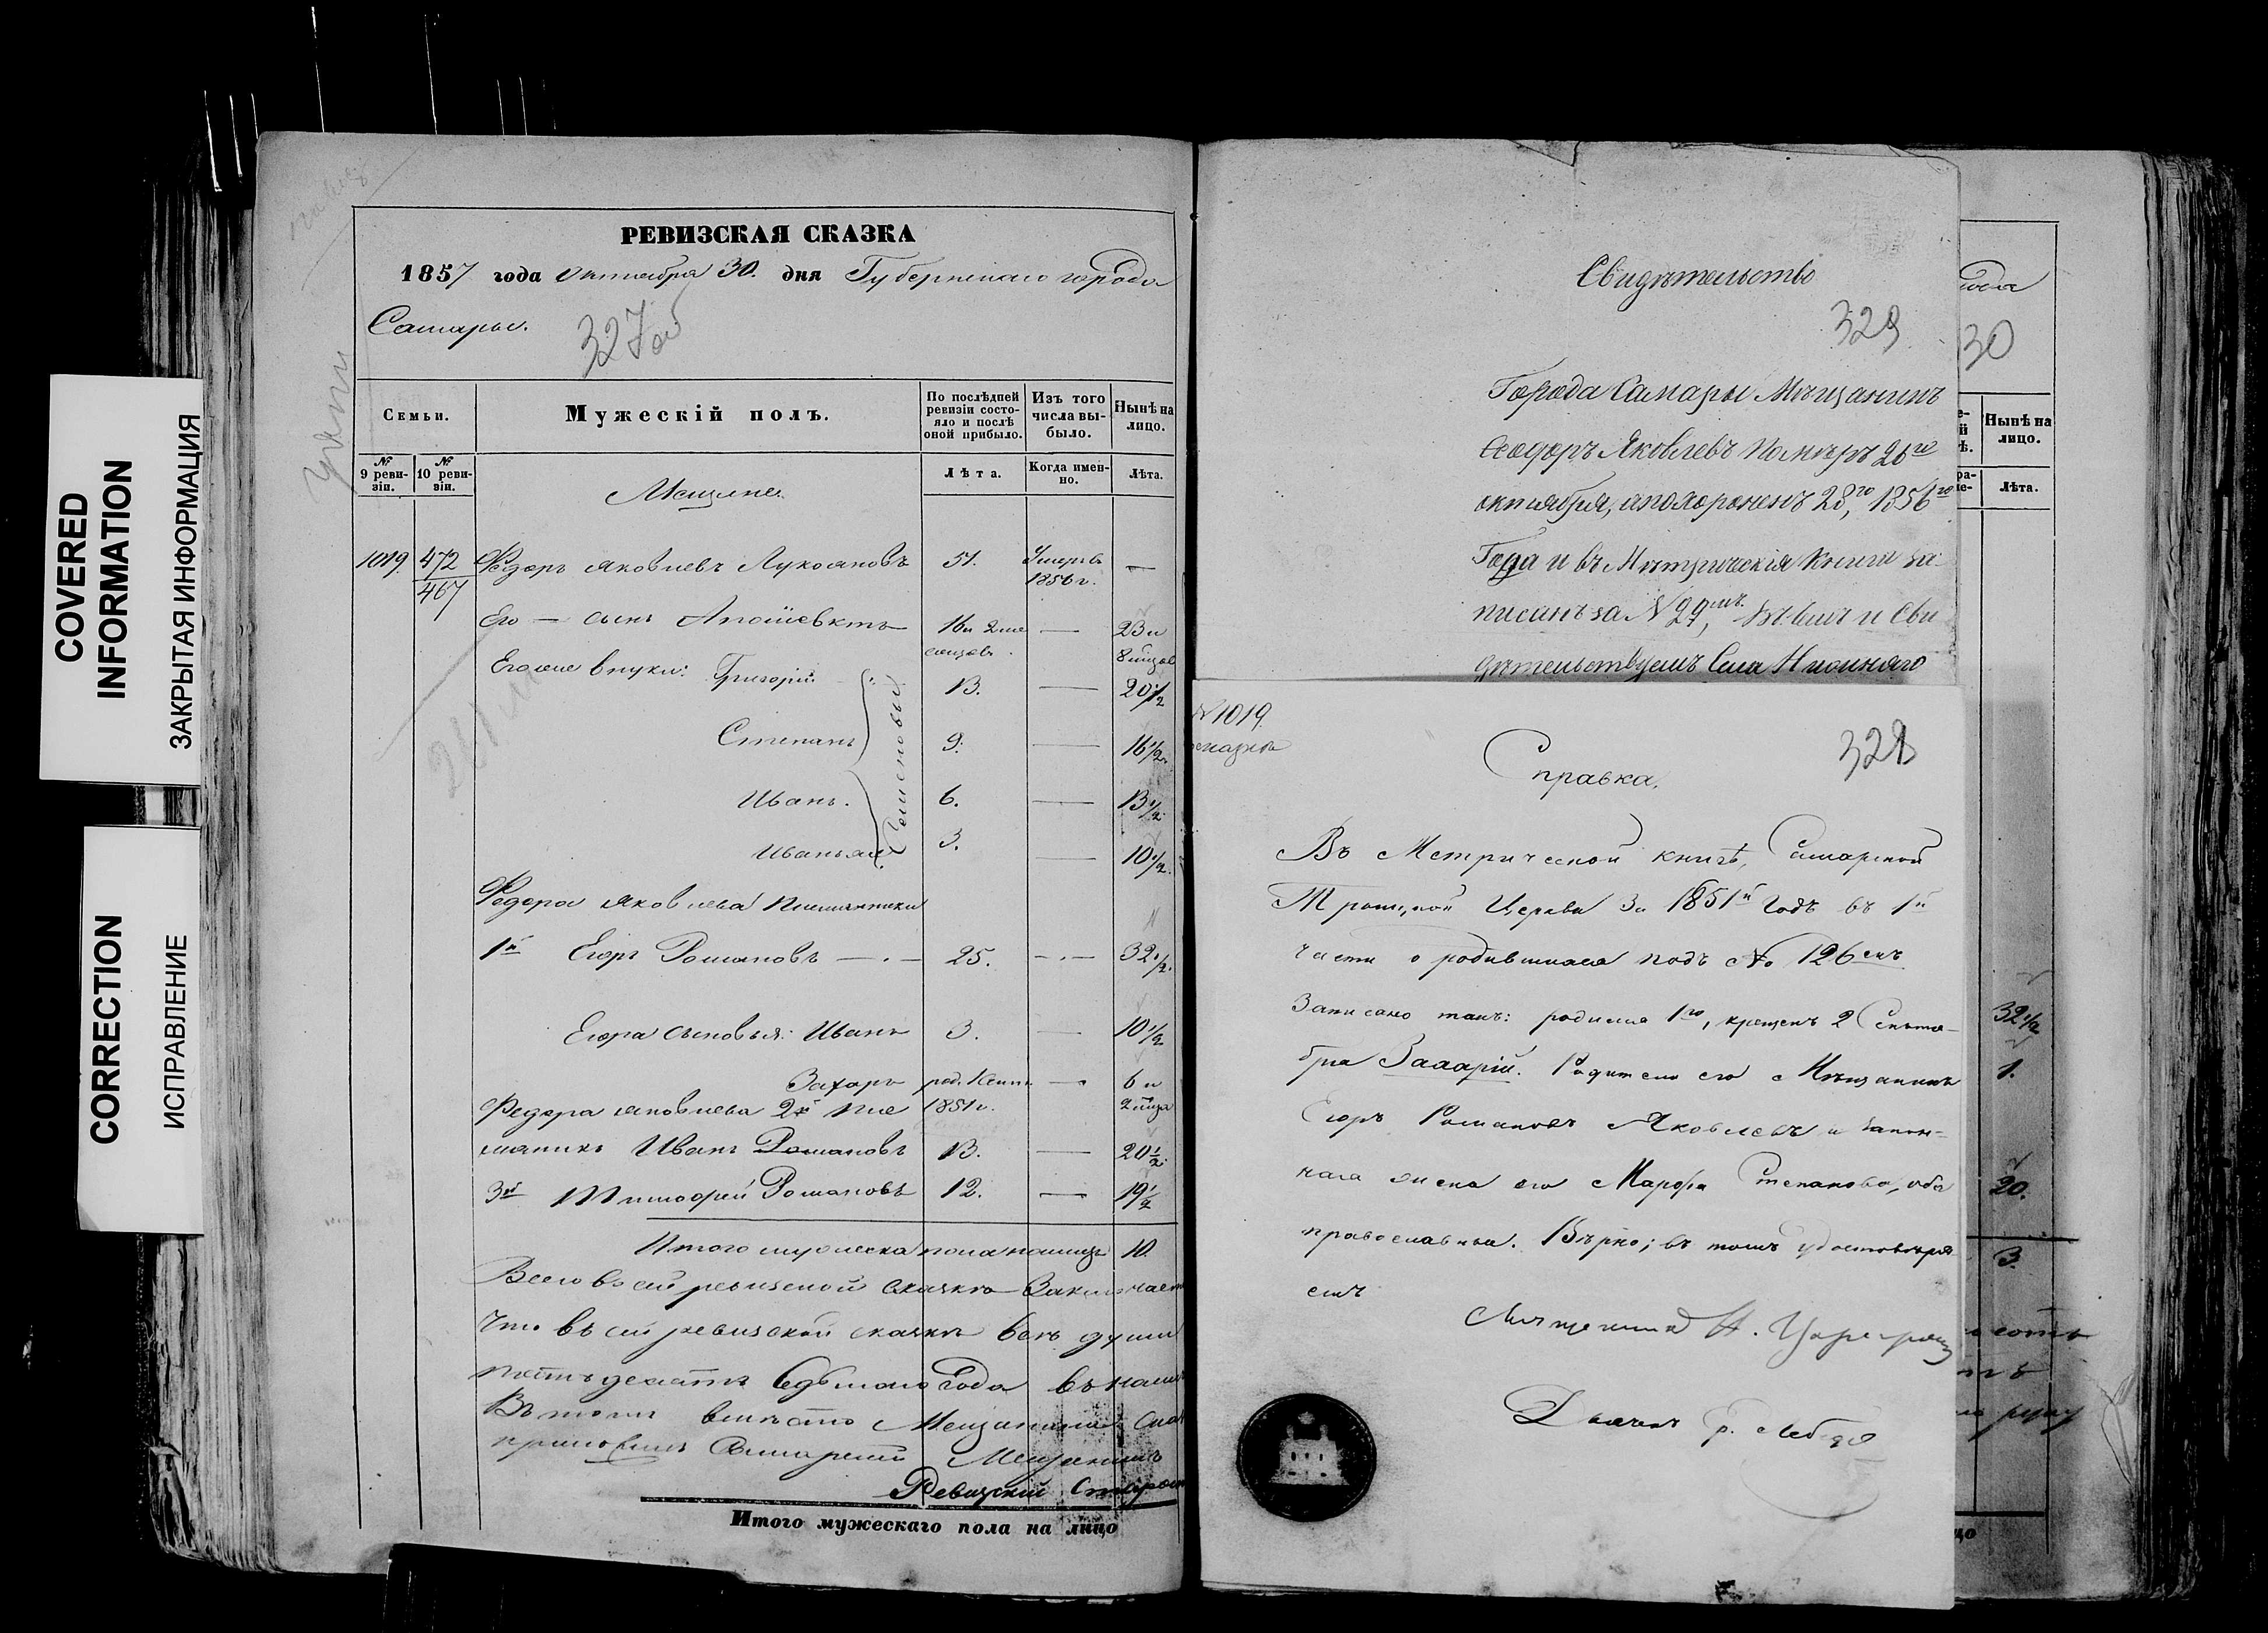 COVERED
INFORMATION
ЗАКРЫТАЯ ИНФОРМАЦИЯ
CORRECTION
ИСПРАВЛЕНИЕ
РЕВИЗСКАЯ СКАЗКА
1857 года Октября 30. дня Губернскаго города
Самары.
327об
Семьи.
Мужескiй полъ.
По послѣдней ревизiи состояло и послѣ оной прибыло.
Изъ того числа выбыло.
Нынѣ на лицо.
№ 9 ревизiи.
№ 10 ревизiи.
Лѣта.
Когда именно.
Лѣта.
Мещане
1019. 472 Федоръ Яковлевъ Лукояновъ 51. Умеръ въ —
467 1856 г.
Его — сынъ 16 и 2 ме — 23 и
сяцовъ. 8 мцов
Его же внуки: Григорiй 13. — 20 1/2
Степанъ 9. — 16 1/2
Иванъ. 6. — 13 1/2
3. — 10 1/2
Семеновы
Федора Яковлева племянники
1й Егоръ Романовъ — . — 25. — . — 32 1/2
Егора сыновья: Иванъ 3. — 10 1/2
Захаръ род. — 6 и
Федора Яковлева 2й пле 1851 г. 2 мца
мянникъ Иванъ Романовъ 13. — 20 1/2
3й Тимофей Романовъ 12. — 19 1/2
Итого мужеска пола налицо 10.
Всего въ сей ревизской сказкѣ
Что въ сей ревизской сказкѣ всѣ души
пятьдесятъ седьмаго Года въ
Въ томъ вмѣсто Мещанина
Самарскiй Мещанинъ
Ревизскiй Старос
Итого мужескаго пола на лицо
Свидѣтельство
329
Города Самары Мѣщанинъ
Ѳеодоръ Яковлевъ Помѣръ 26го
октября, и похороненъ 28го, 1856го
Года и въ Метрическiя Книги за-
писанъ за № 29мъ, Въ чемъ и Сви
дѣтельствуемъ Села Нижняго
№ 1019
сказка
328
Справка.
Въ Метрической книгѣ, Самарской
Троицкой Церкви за 1851й Годъ въ 1й
части о родившихся подъ № 126емъ
Записано такъ: родился 1го, крещенъ 2 Сентя-
бря Захарiй. Родители его Мѣщанинъ
Егоръ Романовъ Яковлевъ и Закон-
ная жена его Марфа Степанова, оба
православные. Вѣрно; въ томъ удостовѣря
емъ
Священникъ
Дьячекъ
330
Нынѣ на лицо.
Лѣта.
32 1/2
1.
20.
3.